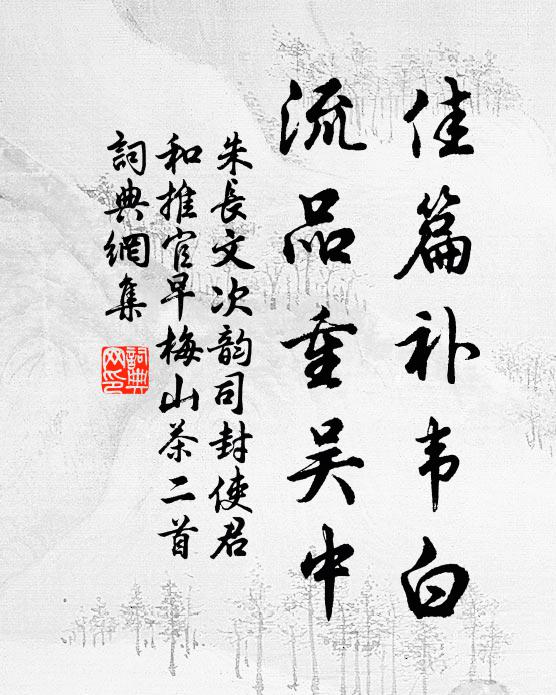 佳篇补韦白
流品重吴中
朱長文次韵司封使君
和推官早梅山茶二首
詞典網集
詞典網印